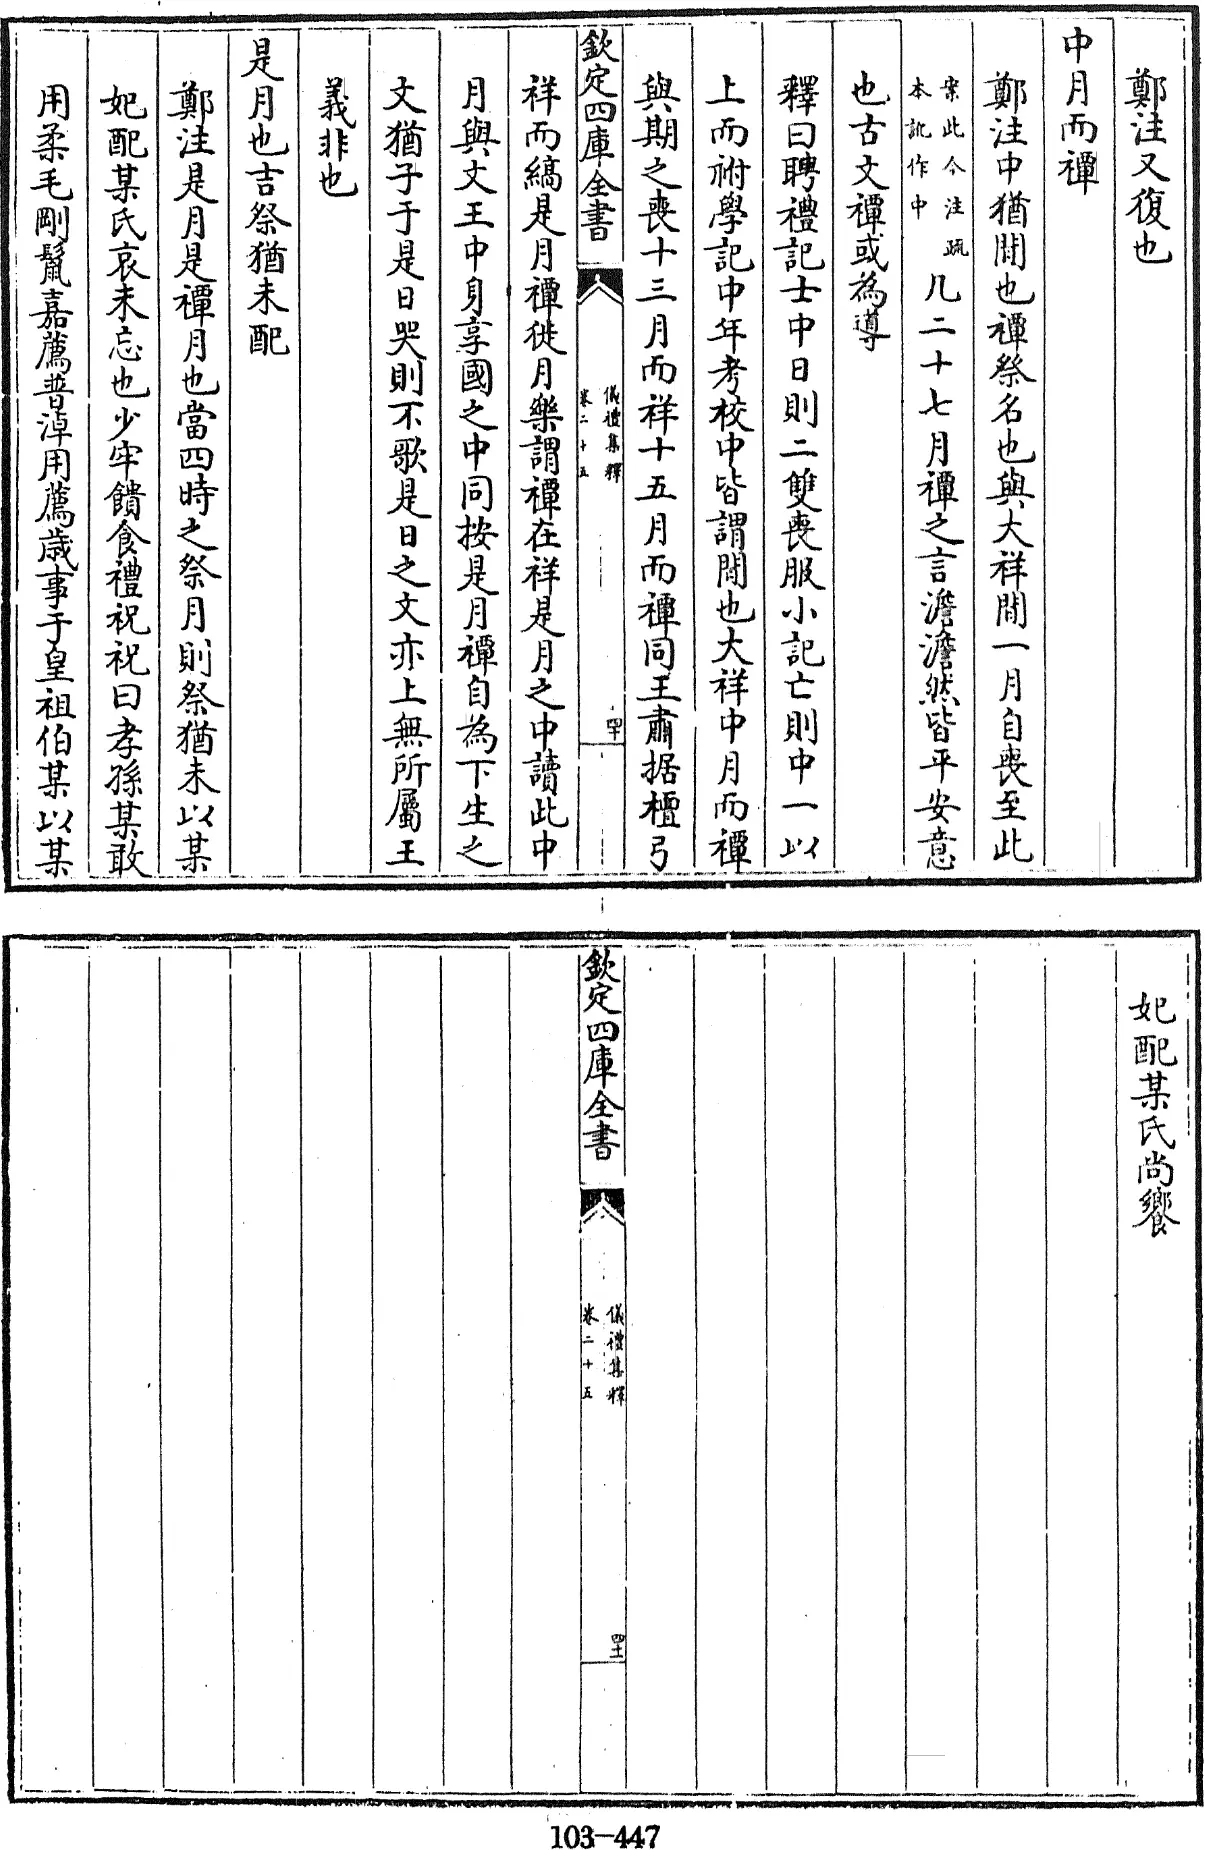 鄭注又復也
中月而禫
鄭注中猶閒也禫祭名也與大祥閒一月自喪至此
案此今注疏
本訛作中
凡二十七月禫之言澹澹然皆平安意
也古文禫或為導
釋曰聘禮記士中日則二雙喪服小記亡則中一以
上而祔學記中年考校中皆謂閒也大祥中月而禫
與期之喪十三月而祥十五月而禫同王肅据檀弓
欽定四庫全書
儀禮集釋
卷二十五
四十
祥而縞是月禫徙月樂謂禫在祥是月之中讀此中
月與文王中身享國之中同按是月禫自為下生之
文猶子于是日哭則不歌是日之文亦上無所屬王
義非也
是月也吉祭猶未配
鄭注是月是禫月也當四時之祭月則祭猶未以某
妃配某氏哀未忘也少牢饋食禮祝祝曰孝孫某敢
用柔毛剛鬣嘉薦普淖用薦歲事于皇祖伯某以某
妃配某氏尚饗
欽定四庫全書
儀禮集釋
卷二十五
四十一
103-447